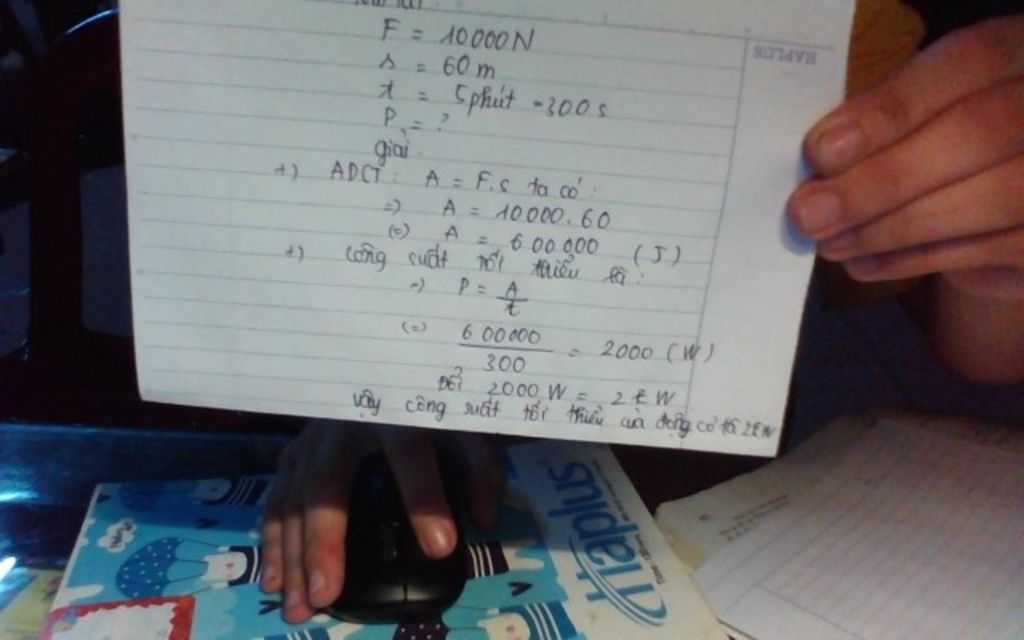 F = 10000N
s = 60 m
t = 5 phút = 300 s
P = ?
giải.
+) ADCT: A = F.s ta có:
=) A = 10000.60
(=) A = 600 000 (J)
+) Công suất tối thiểu là:
=) P = A/t
(=) 600000/300 = 2000 (W)
Đổi 2000 W = 2kW
Vậy công suất tối thiểu của động cơ là 2kW
HAPLUS
Haplus